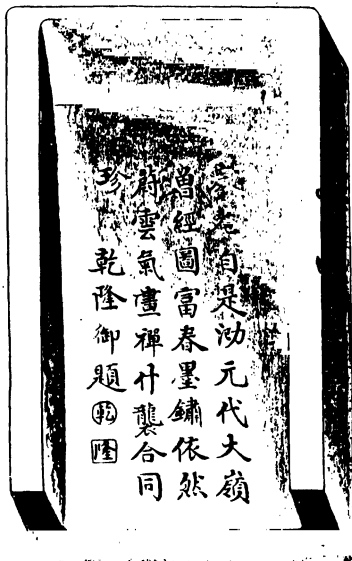 自是泐元代大嶺
曾經圖富春墨鏽依然
蔚雲氣畫禪什襲合同
珍 乾隆御題 乾 隆